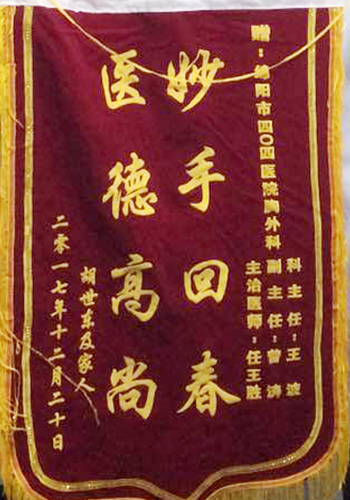 赠：绵阳市四〇四医院胸外科
科主任：王波
副主任：曾涛
主治医师：任王胜
妙手回春
医德高尚
胡世东及家人
二零一七年十二月二十日